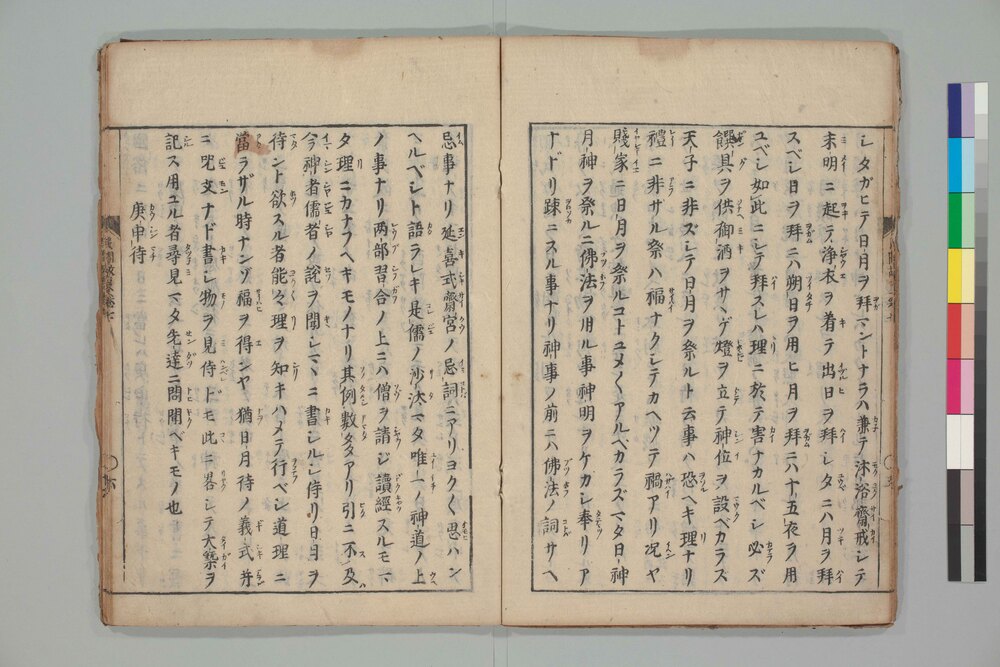 シタガヒテ日月ヲ拜マントナラハ兼テ沐浴齋戒シテ
未明ニ起テ浄衣ヲ着テ出日ヲ拜シマタニハ月ヲ拜
スベシ日ヲ拜ニハ朔日ヲ用ヒ月ヲ拜ニハ十五夜ヲ用
ユベシ如此ニシテ拜スレハ理ニ於テ害ナカルベシ必ズ
饌具ヲ供御酒ヲサヽゲ燈ヲ立テ神位ヲ設ベカラズ
天子ニ非ズシテ日月ヲ祭ルト云事ハ恐ヘキ理ナリ
禮ニ非ザル祭ハ福ナクシテカヘツテ禍アリ况ヤ
賤家ニ日月ヲ祭ルコトユメ〱アルベカラズマタ日神
月神ヲ祭ルニ佛法ヲ用ル事神明ヲケカシ奉リア
ナドリ踈ニスル事ナリ神事ノ前ニハ佛法ノ詞サヘ
忌事ナリ延喜式齋宮ノ忌詞ニアリヨク〱思ハン
ヘルベシト語ラレキ是儒ノ沙汰マタ唯一ノ神道ノ上
ノ事ナリ两部習合ノ上ニハ僧ヲ請ジ讀經スルモマ
タ理ニカナフヘキモノナリ其例數多アリ引ニ不及
今神者儒者ノ說ヲ聞シマヽニ書シルシ侍リ日月ヲ
待ント欲スル者能々理ヲ知キハメテ行ベシ道理ニ
當ラザル時ナンゾ福ヲ得ンヤ猶日月待ノ義式并
ニ呪文ナド書シ物ヲ見侍ドモ此ニ畧シテ大槩ヲ
記ス用ユル者尋見マタ先達ニ問聞ベキモノ也
庚申待